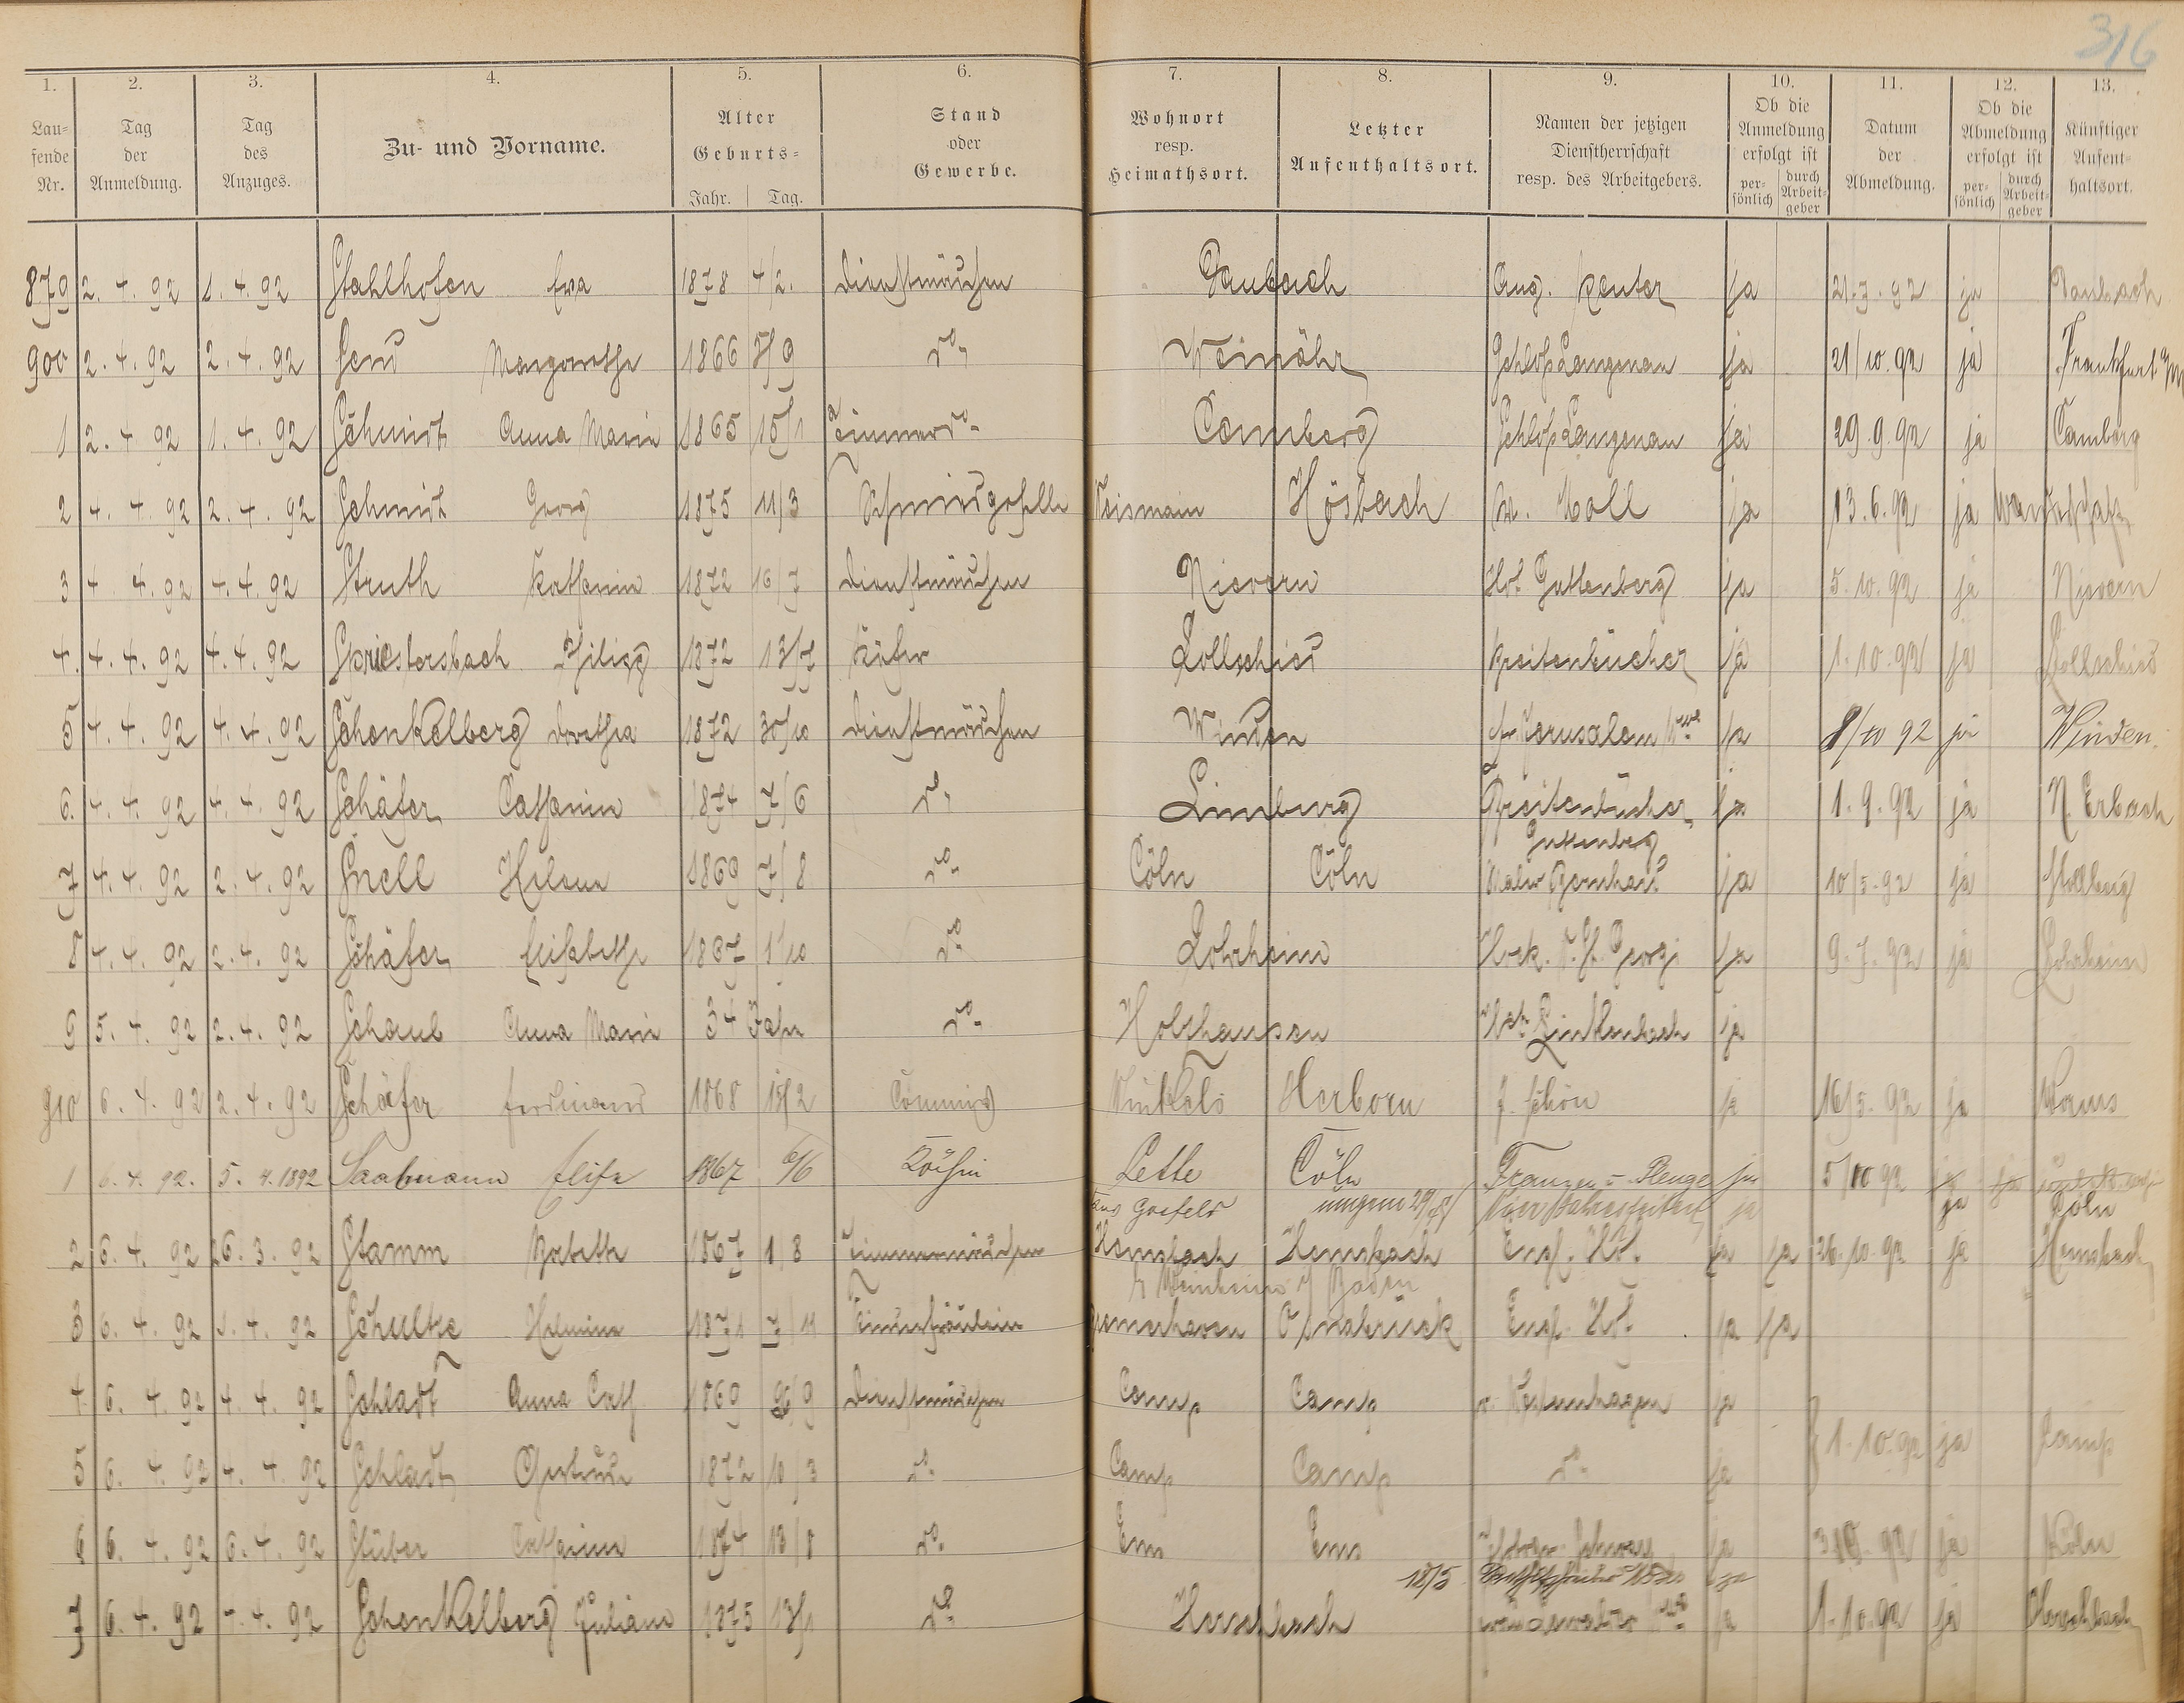 316
1. 2. 3. 4. 5. 6. 7. 8. 9. 10. 11. 12. 13.
Lau-
fende
Nr.
Tag
der
Anmeldung.
Tag
des
Anzuges.
Zu- und Vorname.
Alter
Geburts-
Jahr. Tag.
Stand
oder
Gewerbe.
Wohnort
resp.
Heimathsort.
Letzter
Aufenthaltsort.
Namen der jetzigen
Dienstherrschaft
resp. des Arbeitgebers.
Ob die
Anmeldung
erfolgt ist
per-
sönlich
durch
Arbeit-
geber
Datum
der
Abmeldung.
Ob die
Abmeldung
erfolgt ist
per-
sönlich
durch
Arbeit-
geber
Künftiger
Aufent-
haltsort.
879 2. 4. 92 1. 4. 92 Stahlhofen Eva 1878 4/2. Dienstmädchen Daubach Aug. Reuter ja 21.7.92 ja Daubach
900 2. 4. 92 2. 4. 92 Margarethe 1866 do Weinähr Schloß Langenau ja 21/10.92 ja Frankfurt a/M
1 2. 4. 92 1. 4. 92 Schmidt Anna Maria 1865 15/1 Zimmerdo. Camberg Schloß Langenau ja 29.9.92 ja Camberg
2 4. 4. 92 2. 4. 92 Schmidt Georg 1875 11/3 Schmiedgeselle Weismain Hösbach W. Noll ja 13.6.92 ja Wanderschaft
3 4. 4. 92 4. 4. 92 Struth Katharina 1872 16/7 Dienstmädchen Nievern Hot. Guttenberg ja 5.10.92 ja Nievern
4. 4. 4. 92 4. 4. 92 Spriestersbach Philipp 1872 13/7 Küfer Lollschied Breitenbücher ja 1.10.92 ja Lollschied
5 4. 4. 92 4. 4. 92 Schenkelberg Dorothea 1872 30/10 Dienstmädchen Winden Jerusalem Wwe ja 8/10 92 ja Winden.
6. 4. 4. 92 4. 4. 92 Schäfer Catharina 1874 7/6 do Limburg Breitenbücher ja 1.9.92 ja N. Erbach
Guttenberg
7 4. 4. 92 2. 4. 92 Snell Helena 1869 7/8 do. Cöln Cöln Maler Bernhard ja 10/5.92 ja
8 4. 4. 92 2. 4. 92 Schäfer Elisabeth 1867 1/10 do Lohrheim ja 9.7.92 ja Lohrheim
9 5. 4. 92 2. 4. 92 Schaub Anna Maria 34 Jahr do. Holzhausen Linkenbach ja
910 6. 4. 92 2. 4. 92 Schäfer Ferdinand 1868 13/2 Commis Winkels Herborn F. Schön ja 16/5.92 ja Worms
1 6. 4. 92. 5. 4. 1892 Saalmann Elise 1867 6/6 Köchin Lette Cöln Franzen - Plenge ja 5/10 92
Coesfeld Vier Jahreszeiten ja ja Cöln
2 6. 4. 92 26. 3. 92 Stamm Babette 1867 1 8 Zimmermädchen Hemsbach Hemsbach Engl. Hof. ja ja 26.10.92 ja Hemsbach
b Weinheim i/ Baden
3 6. 4. 92 1. 4. 92 Schultze Helmine 1871 7/11 Bremerhaven Osnabrück Engl. Hof. ja ja
4 6. 4. 92 4. 4. 92 Schladt Anna Cath 1869 26/9 Dienstmädchen Camp Camp ja
1.10.92 ja Camp
5 6. 4. 92 4. 4. 92 Schladt Gertrude 1872 10/3 do. Camp Camp do. ja
6 6. 4. 92 6. 4. 92 Stüber Catharina 1874 13/8 do. Ems Ems ja ja Köln
18/5 ja
7 6. 4. 92 4. 92 Schenkelberg Juliane 1875 13/1 do. Herschbach ja 1.10.92 ja Herschbach